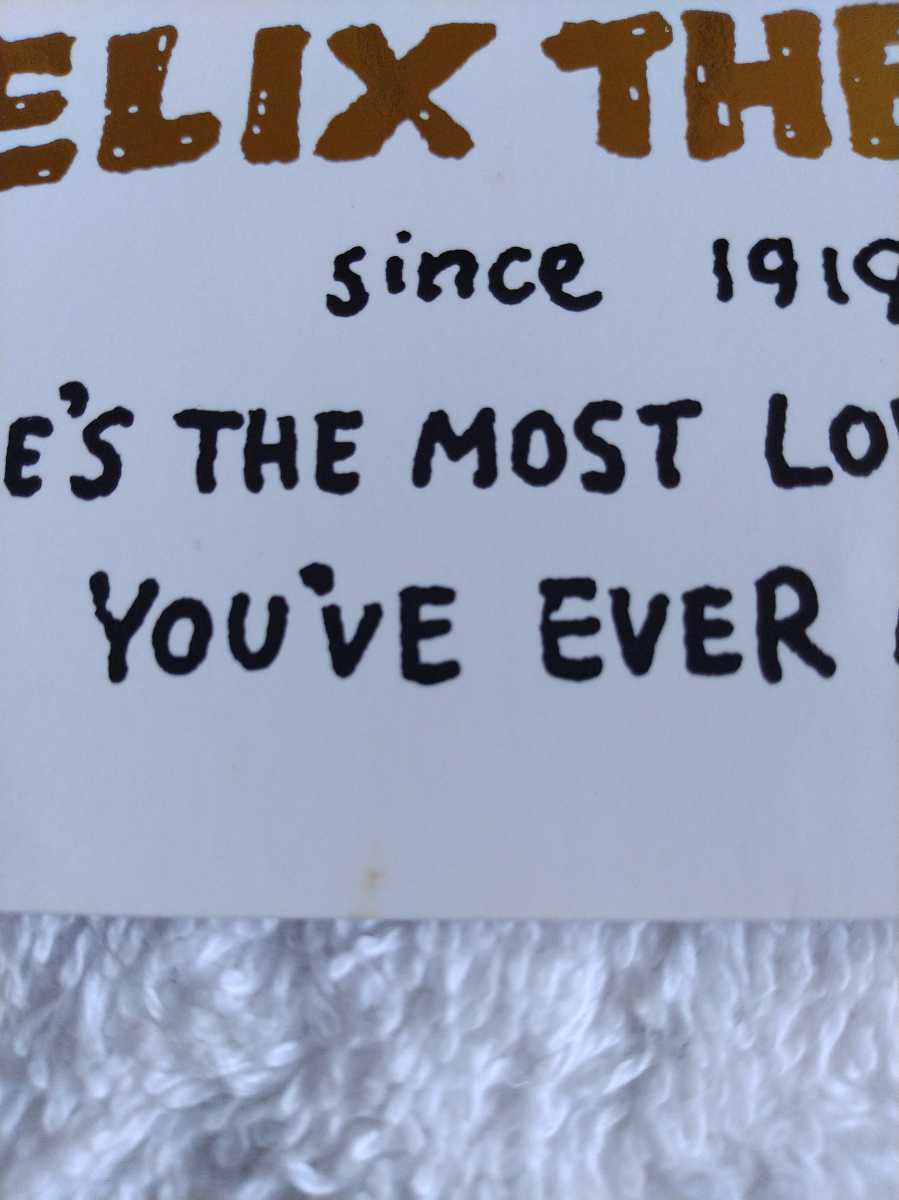 ELIX THE
since 1919
E'S THE MOST LOV
YOU'VE EVER